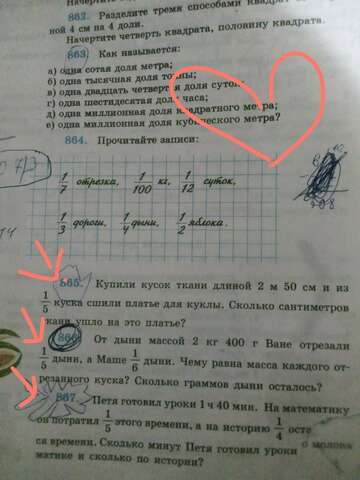 862. Разделите тремя способами квадрат
ной 4 см на 4 доли.
Начертите четверть квадрата, половину квадрата.
863. Как называется:
а) одна сотая доля метра;
б) одна тысячная доля тонны;
в) одна двадцать четвертая доля суток;
г) одна шестидесятая доля часа;
д) одна миллионная доля квадратного метра;
е) одна миллионная доля кубического метра?
864. Прочитайте записи:
1/7 отрезка, 1/100 кг, 1/12 суток,
1/3 дороги, 1/4 дыни, 1/2 яблока.
865. Купили кусок ткани длиной 2 м 50 см и из
1/5 куска сшили платье для куклы. Сколько сантиметров
ткани ушло на это платье?
866. От дыни массой 2 кг 400 г Ване отрезали
1/5 дыни, а Маше 1/6 дыни. Чему равна масса каждого от-
резанного куска? Сколько граммов дыни осталось?
867. Петя готовил уроки 1 ч 40 мин. На математику
он потратил 1/5 этого времени, а на историю 1/4 оста
ся времени. Сколько минут Петя готовил уроки
матике и сколько по истории?